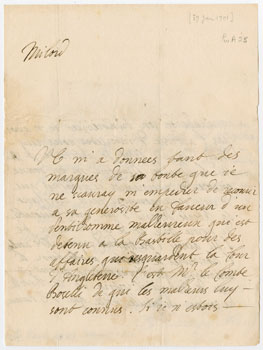 Milord
m'a donnees tant des
marques de sa bonte que je
ne sauray m'empecher de recourir
a sa generosite en faveur d'un
gentilhomme malheureux qui est
detenu a la Bastille pour des
affaires qui reguardent la Cour
d'Angleterre c'est Mr le Comte
de qui les malheurs luy
sont connus. Si je n'estois